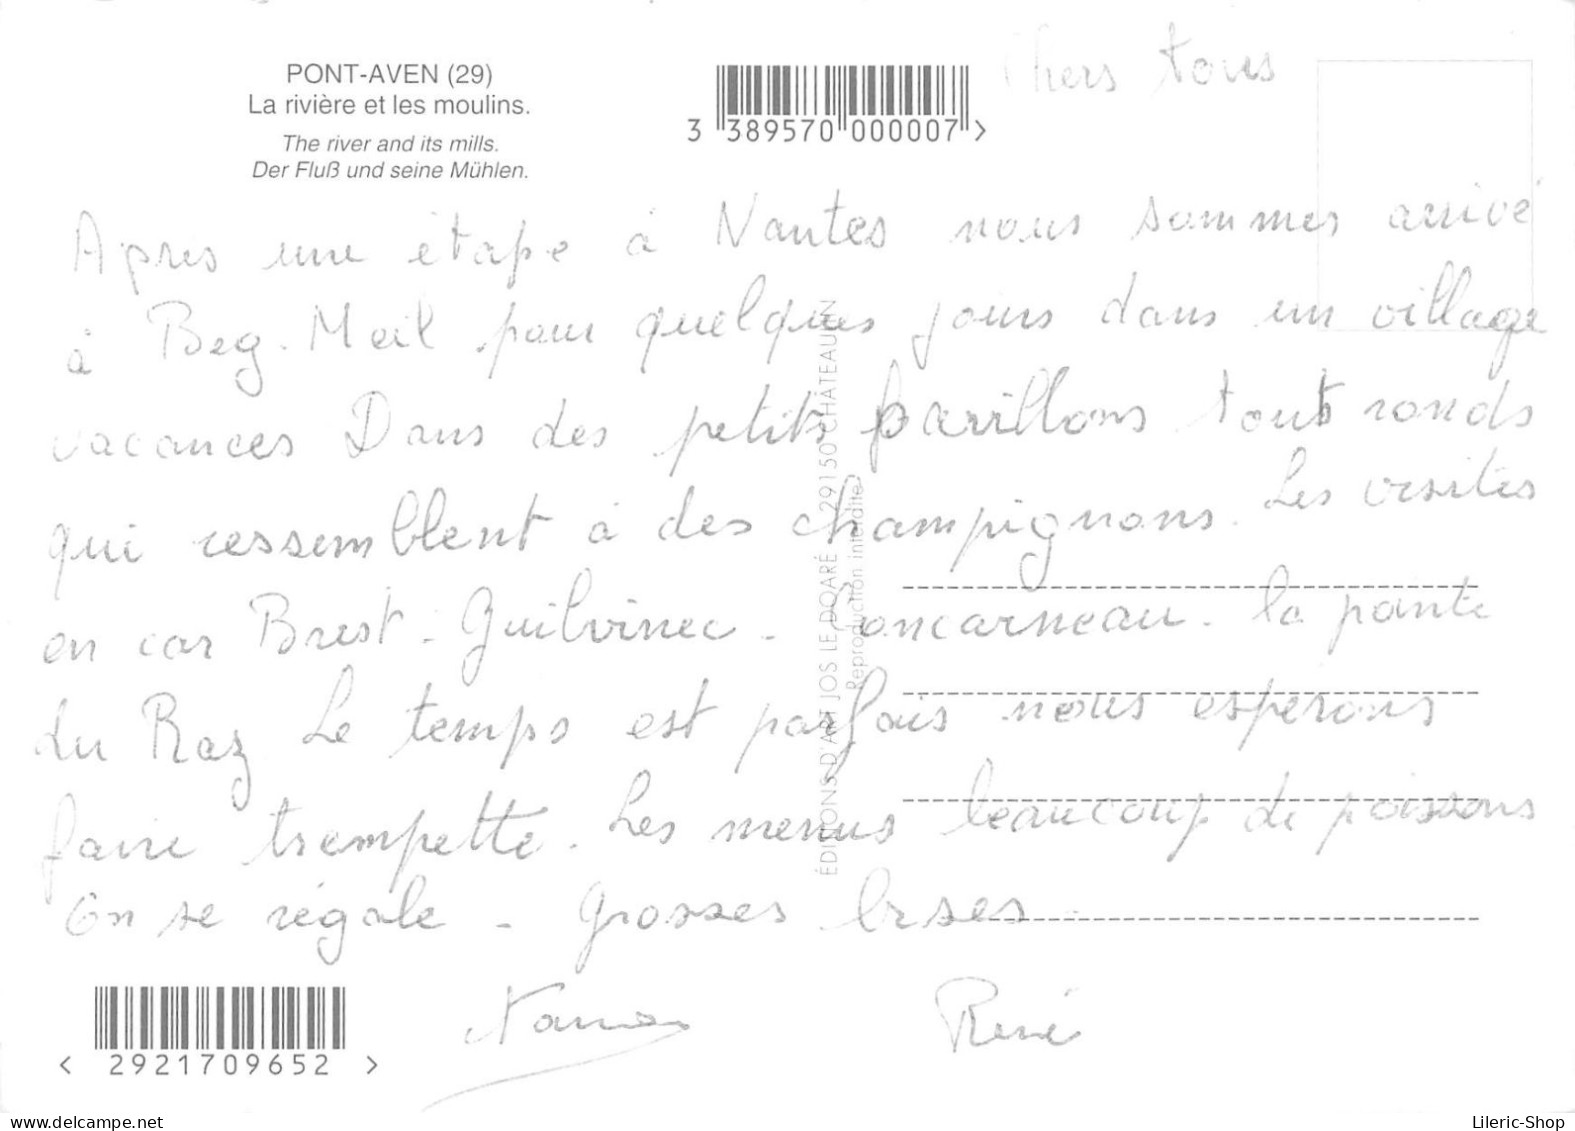 PONT-AVEN (29)
La rivière et les moulins.
The river and its mills.
Der Fluß und seine Mühlen.
3 389570 000007 >
Chers tous
Apres une étape à Nantes nous sommes arrivé
à Beg-Meil pour quelques jours dans un village
vacances Dans des petits pavillons tout ronds
qui ressemblent à des champignons. Les visites
en car Brest - Guilvinec - Concarneau - la pointe
du Raz Le temps est parfais nous esperons
faire trempette. Les menus beaucoup de poissons
On se régale - Grosses bises -
René
ÉDITIONS D'ART JOS LE DOARÉ 29150 CHÂTEAULIN
Reproduction interdite
< 2921709652 >
delcampe.net
Lileric-Shop